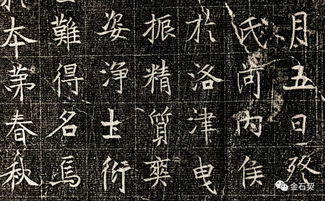 月五日
氏尚内侯
於洛津曳
振精質
姿淨土衍
難得名焉
於本第春秋
金石契